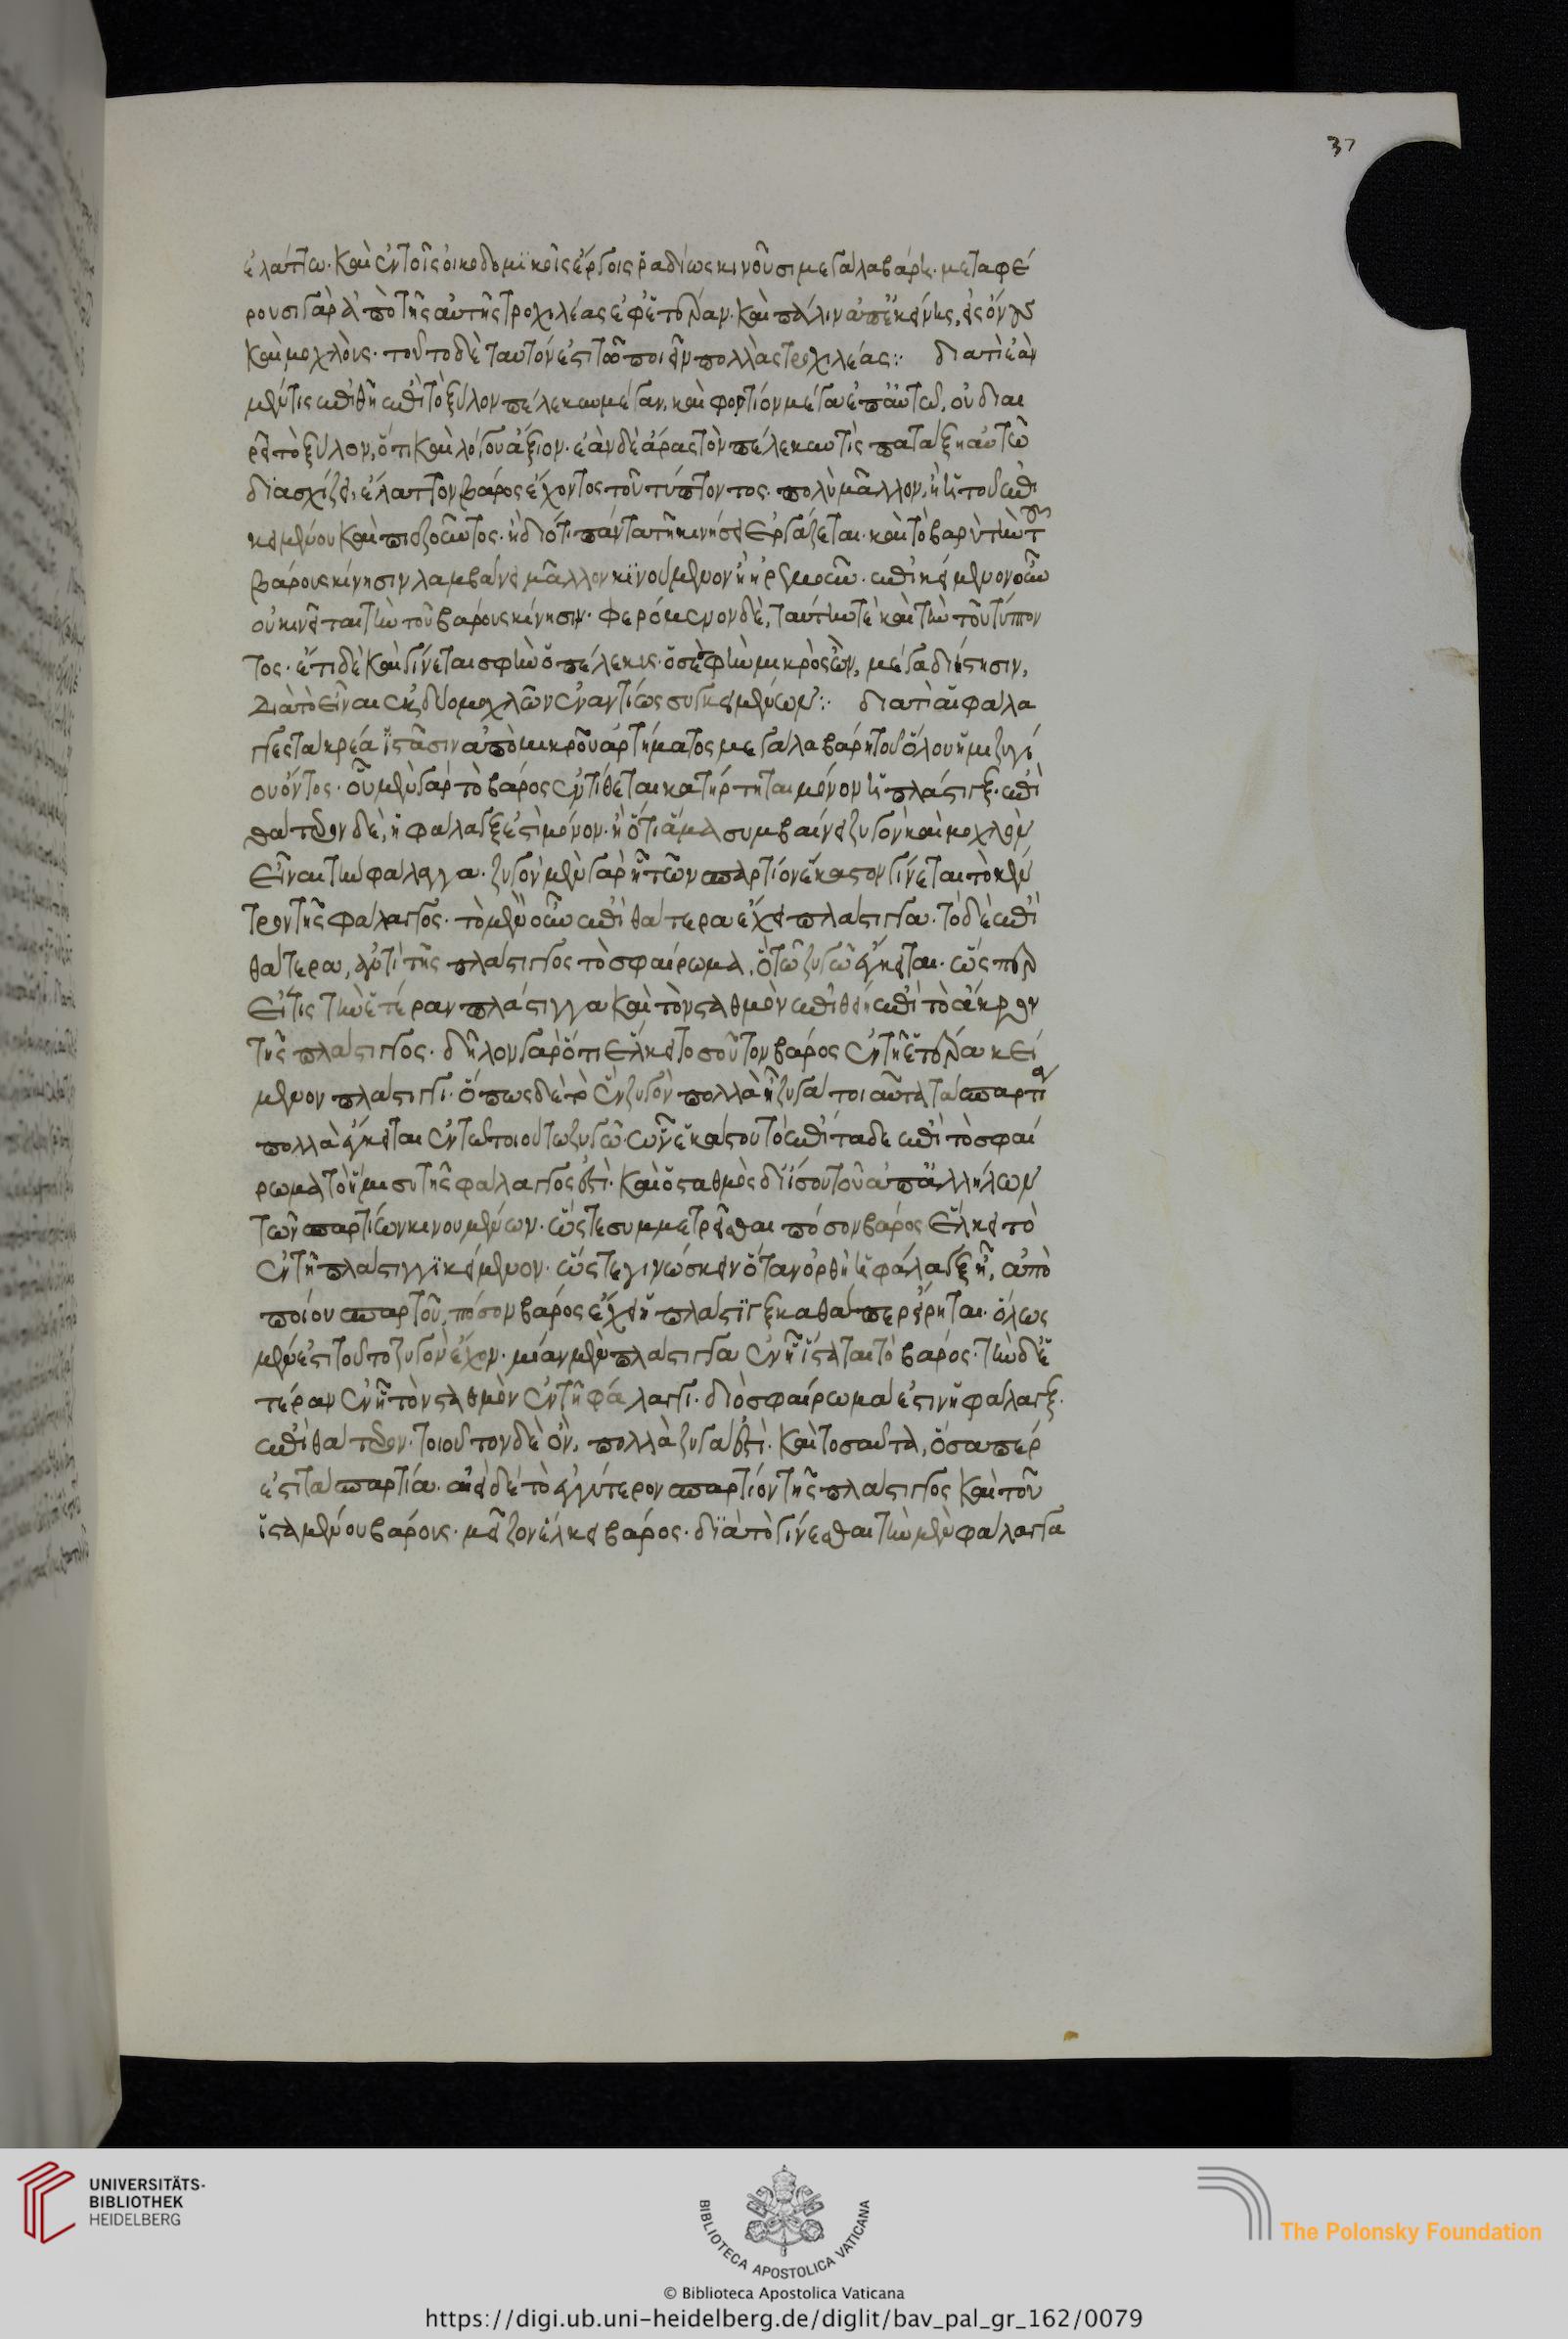 ἐλάττω· καὶ ἐν τοῖς οἰκοδομϊκοῖς ἔργοις ῥαδίως κινοῦσι μεγάλα βάρη· μεταφέ
ρουσι γὰρ ἀπὸ τῆς αὐτῆς τροχιλέας ἐφ' ἑτέραν· καὶ πάλιν ἀπ' ἐκείνης, εἰς ὄνους
καὶ μοχλοὺς· τοῦτο δὲ ταυτόν ἐστι τῶ ποιεῖν πολλὰς τροχιλέας: διατὶ ἐὰν
μέν τις ἐπιθῆ ἐπὶ τὸ ξύλον πέλεκυν μέγαν, καὶ φορτίον μέγα ἐπ' αὐτῶ, οὐ διαι
ρεῖ τὸ ξύλον, ὅτι καὶ λόγου ἄξιον· ἐὰν δὲ ἄρας τὸν πέλεκυν τὶς πατάξη αὐτῶ
διασχίζει, ἔλαττον βάρος ἔχοντος τοῦ τύπτοντος· πολὺ μᾶλλον, ἢ τοῦ ἐπι
κειμένου καὶ πιεζοῦντος· ἢ διότι πάντα τῆ κινήσει ἐργάζεται· καὶ τὸ βαρὺ τὴν τοῦ
βάρους κίνησιν λαμβάνει μᾶλλον κϊνούμενον ἢ ἠρεμοῦν· ἐπικείμενον οὖν
οὐ κινεῖται τὴν τοῦ βάρους κίνησιν· φερόμενον δὲ, ταύτην τὲ καὶ τὴν τοῦ τύπτον
τος· ἔτι δὲ καὶ γίνεται σφὴν ὁ πέλεκυς· ὁ δὲ σφὴν μικρὸς ὢν, μεγάλα διίστησιν,
διὰ τὸ εἶναι ἐκ δύο μοχλῶν ἐναντίως συγκειμένων: διατὶ αἱ φάλα
γγες τὰ κρέα ἱστᾶσιν ἀπὸ μικροῦ ἀρτήματος μεγάλα βάρη τοῦ ὅλου ἡμιζυγί
ου ὄντος· οὗ μὲν γὰρ τὸ βάρος ἐντίθεται κατήρτηται μόνον ἡ πλάστιγξ· ἐπὶ
θάτερον δὲ, ἡ φάλαγξ ἐστὶ μόνον· ἢ ὅτι ἅμα συμβαίνει ζυγὸν καὶ μοχλὸν
εἶναι τὴν φάλαγγα· ζυγὸν μὲν γὰρ ἧ τῶν σπαρτίων ἕκαστον γίνεται τὸ κέν
τρον τῆς φάλαγγος· τὸ μὲν οὖν ἐπὶ θάτερα ἔχει πλάστιγγα· τὸ δὲ ἐπὶ
θάτερα, ἀντὶ τῆς πλάστιγγος τὸ σφαίρωμα, ὃ τῶ ζυγῶ ἔγκειται· ὥσπερ
εἴ τις τὴν ἑτέραν πλάστιγγα καὶ τὸν σταθμὸν ἐπιθείη ἐπὶ τὸ ἄκρον
τῆς πλάστιγγος· δῆλον γὰρ ὅτι ἕλκει τοσοῦτον βάρος ἐν τῆ ἑτέρα κεί
μενον πλάστιγγι· ὅπως δὲ τὸ ἓν ζυγὸν πολλὰ ἦ ζυγὰ τοιαῦτα τὰ σπαρτία
πολλὰ ἔγκειται ἐν τῶ τοιούτω ζυγῶ· ὧν ἑκάστου τὸ ἐπὶ τάδε ἐπὶ τὸ σφαί
ρωμα τὸ ἥμισυ τῆς φάλαγγος ἐστὶ· καὶ ὁ σταθμὸς δι' ἴσου τοῦ ἀπ' ἀλλήλων
τῶν σπαρτίων κινουμένων· ὥστε συμμετρεῖσθαι πόσον βάρος ἕλκει τὸ
ἐν τῆ πλάστιγγϊ κείμενον· ὥστε γινώσκειν ὅταν ὀρθὴ ἡ φάλαγξ ἦ, ἀπὸ
ποίου σπαρτοῦ, πόσον βάρος ἔχει ἡ πλάστϊγξ καθάπερ εἴρηται· ὅλως
μέν ἐστι τοῦτο ζυγὸν ἔχον· μίαν μὲν πλάστιγγα ἐν ἧ ἵσταται τὸ βάρος· τὴν δὲ ἑ
τέραν ἐν ἧ τὸν σταθμὸν ἐν τῆ φάλαγγι· διὸ σφαίρωμα ἐστὶν ἡ φάλαγξ·
ἐπὶ θάτερον· τοιοῦτον δὲ ὂν, πολλὰ ζυγά ἐστὶ· καὶ τοσαῦτα, ὅσα πέρ
ἐστι τὰ σπαρτία· ἀεὶ δὲ τὸ ἐγγύτερον σπαρτίον τῆς πλάστιγγος καὶ τοῦ
ἱσταμένου βάρους· μεῖζον ἕλκει βάρος· διὰ τὸ γίνεσθαι τὴν μὲν φάλαγγα
37
UNIVERSITÄTS-
BIBLIOTHEK
HEIDELBERG
BIBLIOTECA APOSTOLICA VATICANA
The Polonsky Foundation
© Biblioteca Apostolica Vaticana
https://digi.ub.uni-heidelberg.de/diglit/bav_pal_gr_162/0079